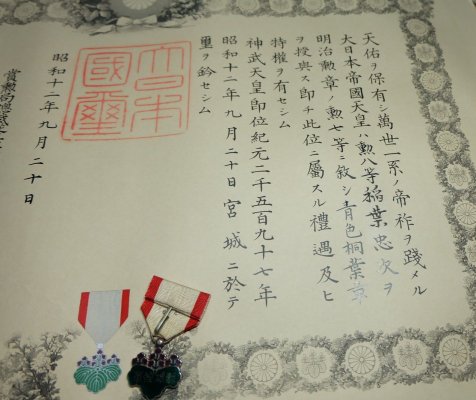 天佑ヲ保有シ萬世一系ノ帝祚ヲ踐メル
大日本帝國天皇ハ勲八等稲葉忠次ヲ
明治勲章ノ勲七等ニ敍シ青色桐葉章
ヲ授與ス即チ此位ニ屬スル禮遇及ヒ
特權ヲ有セシム
神武天皇即位紀元二千五百九十七年
昭和十二年九月二十日宮城ニ於テ
璽ヲ鈐セシム
大日本
國璽
昭和十二年九月二十日
賞勲局總裁